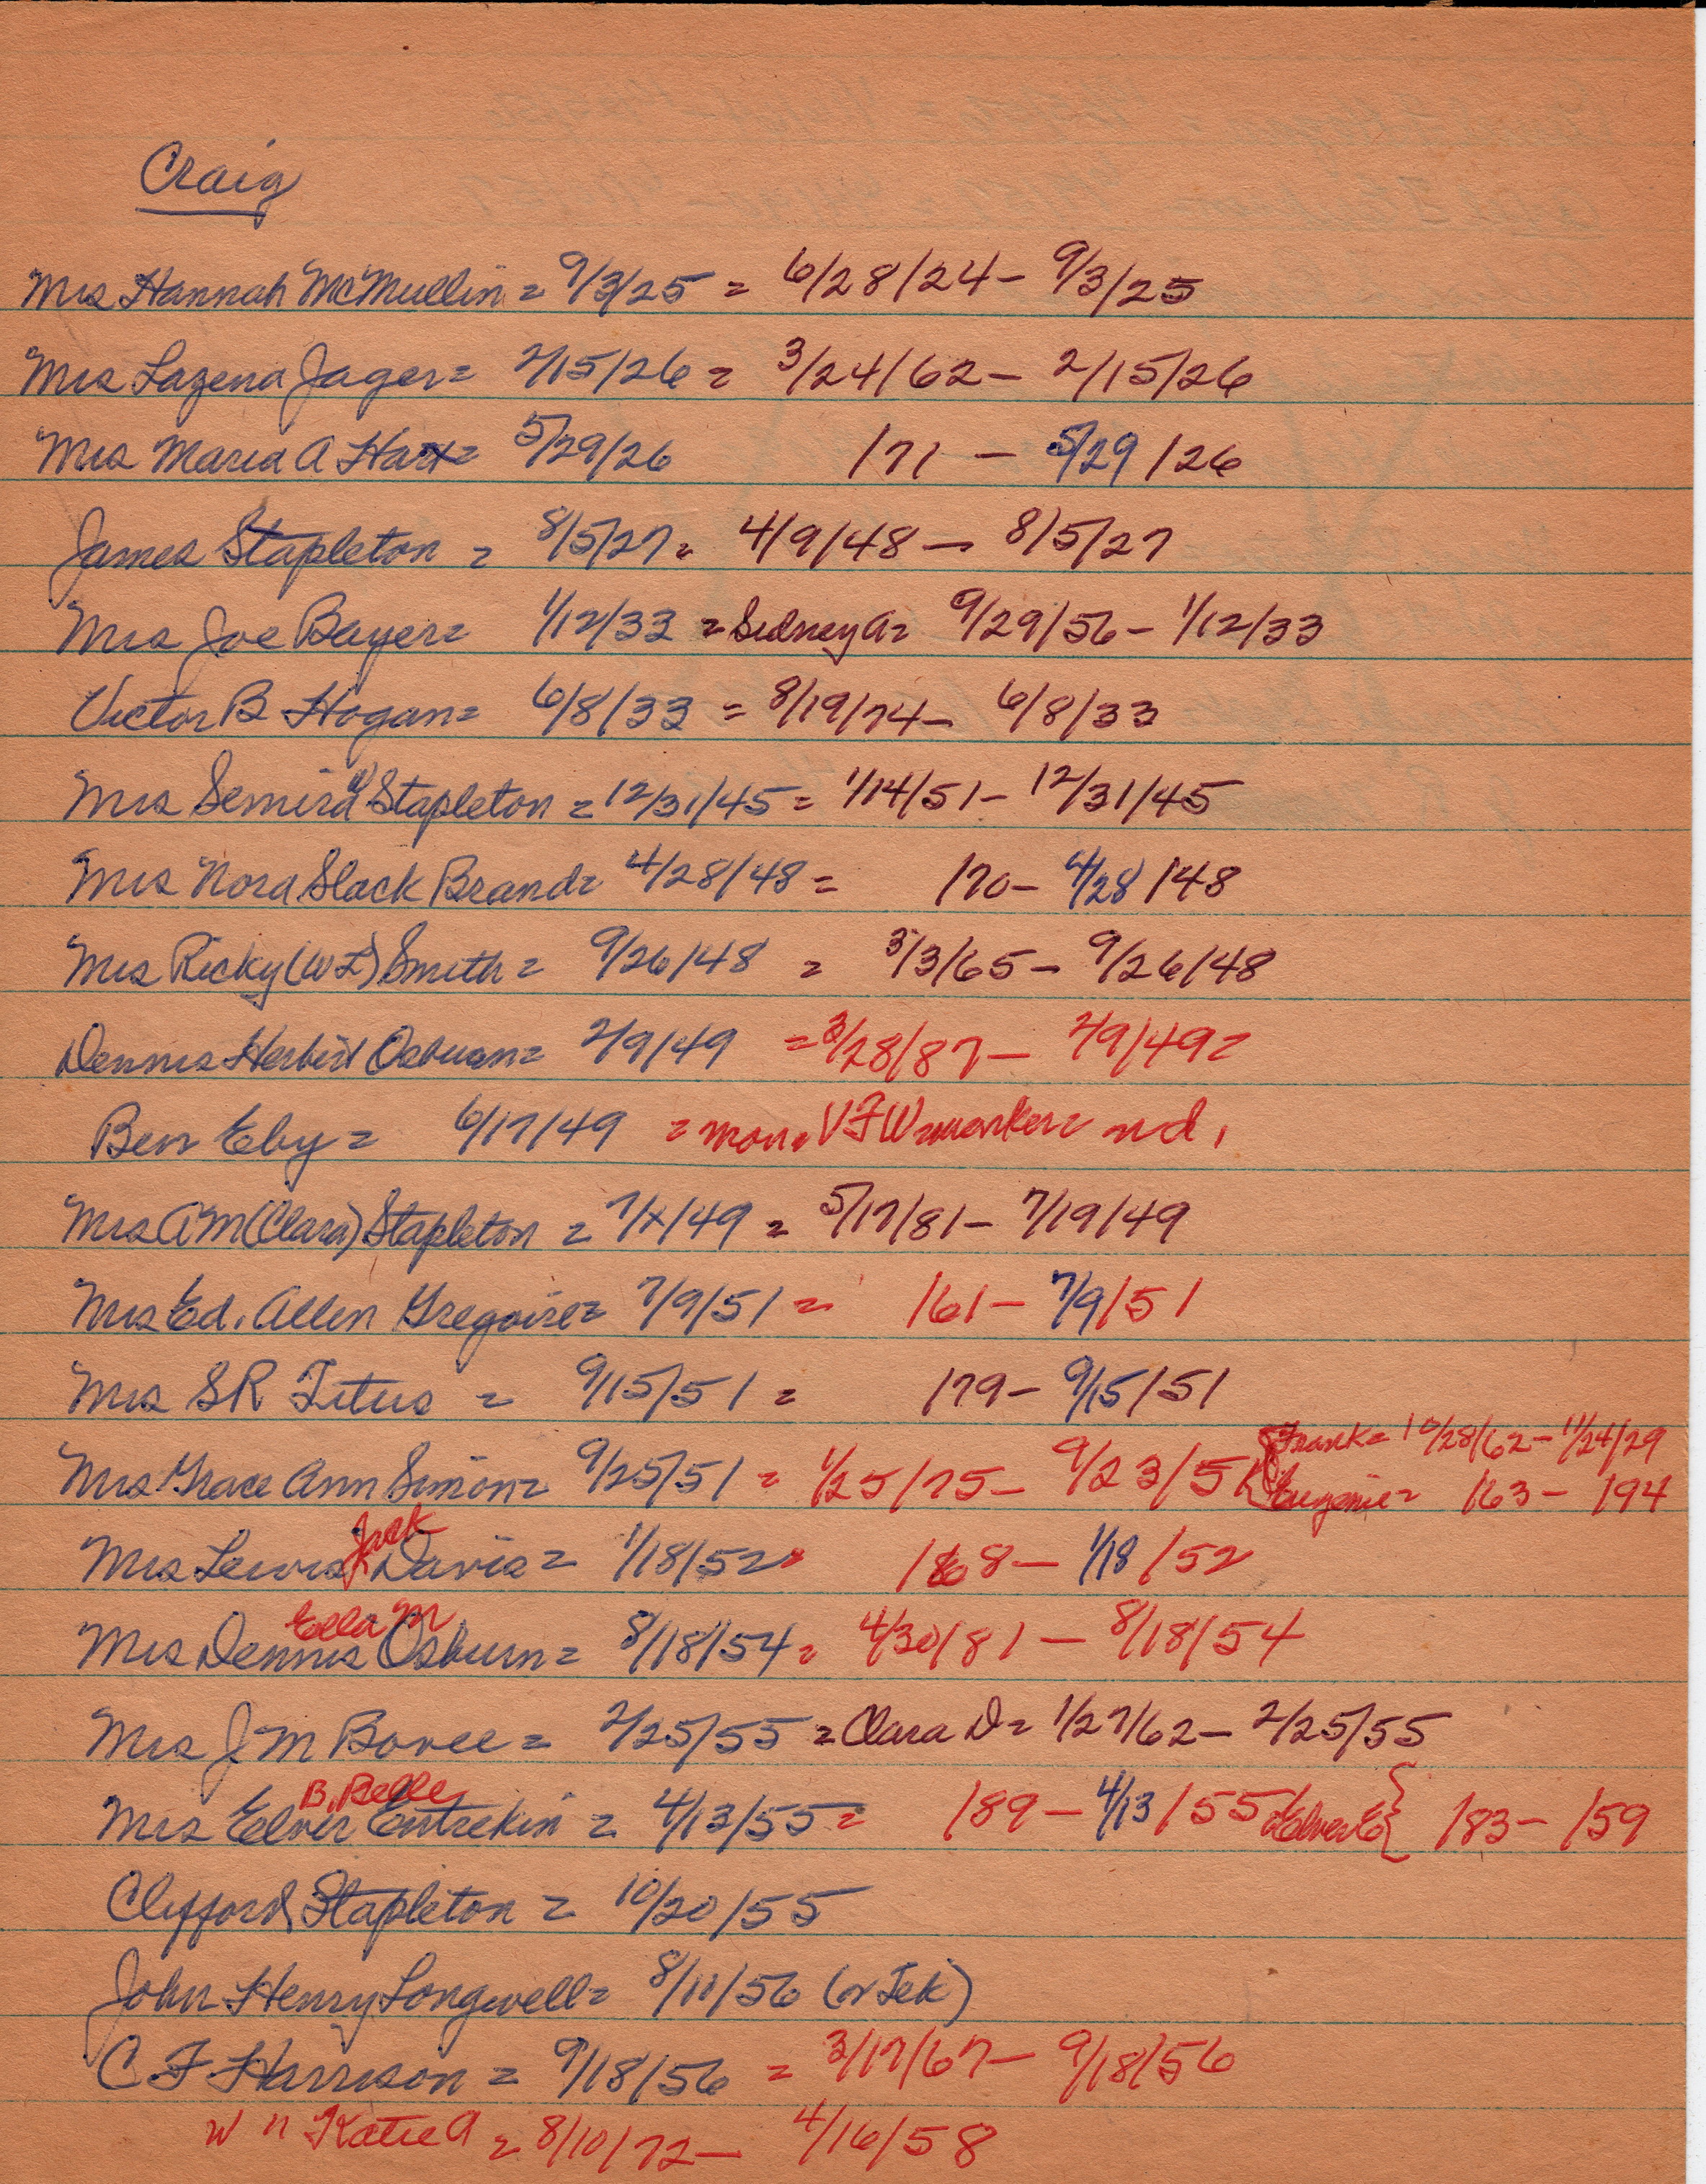 Craig
Mrs Hannah McMullin = 9/3/25 = 6/28/24 - 9/3/25
Mrs Lazena Jager = 2/15/26 = 3/24/62 - 2/15/26
Mrs Maria A Hart = 5/29/26 /71 - 5/29/26
James Stapleton = 8/5/27 = 4/9/48 - 8/5/27
Mrs Joe Bayer = 1/12/33 = Sidney A = 9/29/56 - 1/12/33
Victor B Hogan = 6/8/33 = 8/19/74 - 6/8/33
Mrs Semira Stapleton = 12/31/45 = 1/14/51 - 12/31/45
Mrs Nora Slack Brand = 4/28/48 = /70 - 4/28/48
Mrs Ricky (WL) Smith = 9/26/48 = 3/3/65 - 9/26/48
Dennis Herbert Osburn = 2/9/49 = 3/28/87 - 2/9/49 =
Ben Eby = 6/17/49 = mon. VFW marker = nd.
Mrs AM (Clara) Stapleton = 7/x/49 = 5/17/81 - 7/19/49
Mrs Ed. Allen Gregoire = 7/9/51 = /61 - 7/9/51
Mrs SR Titus = 9/15/51 = /79 - 9/15/51
Frank = 10/28/62 - 11/24/29
Mrs Grace Ann Simon = 9/25/51 = 1/25/75 - 9/23/51 Eugenie = /63 - /94
Jack
Mrs Lewis Davis = 1/18/52 = /868 - 1/18/52
Ella M
Mrs Dennis Osburn = 8/18/54 = 4/30/81 - 8/18/54
Mrs J M Boree = 2/25/55 = Clara D = 1/27/62 - 2/25/55
B. Belle
Mrs Elver Entrekin = 4/13/55 = /89 - 4/13/55 Elver E { /83 - /59
Clifford Stapleton = 10/20/55
John Henry Longwell = 8/11/56 (or Tek)
C F Harrison = 9/18/56 = 3/17/67 - 9/18/56
W " Katie A = 8/10/72 - 4/16/58